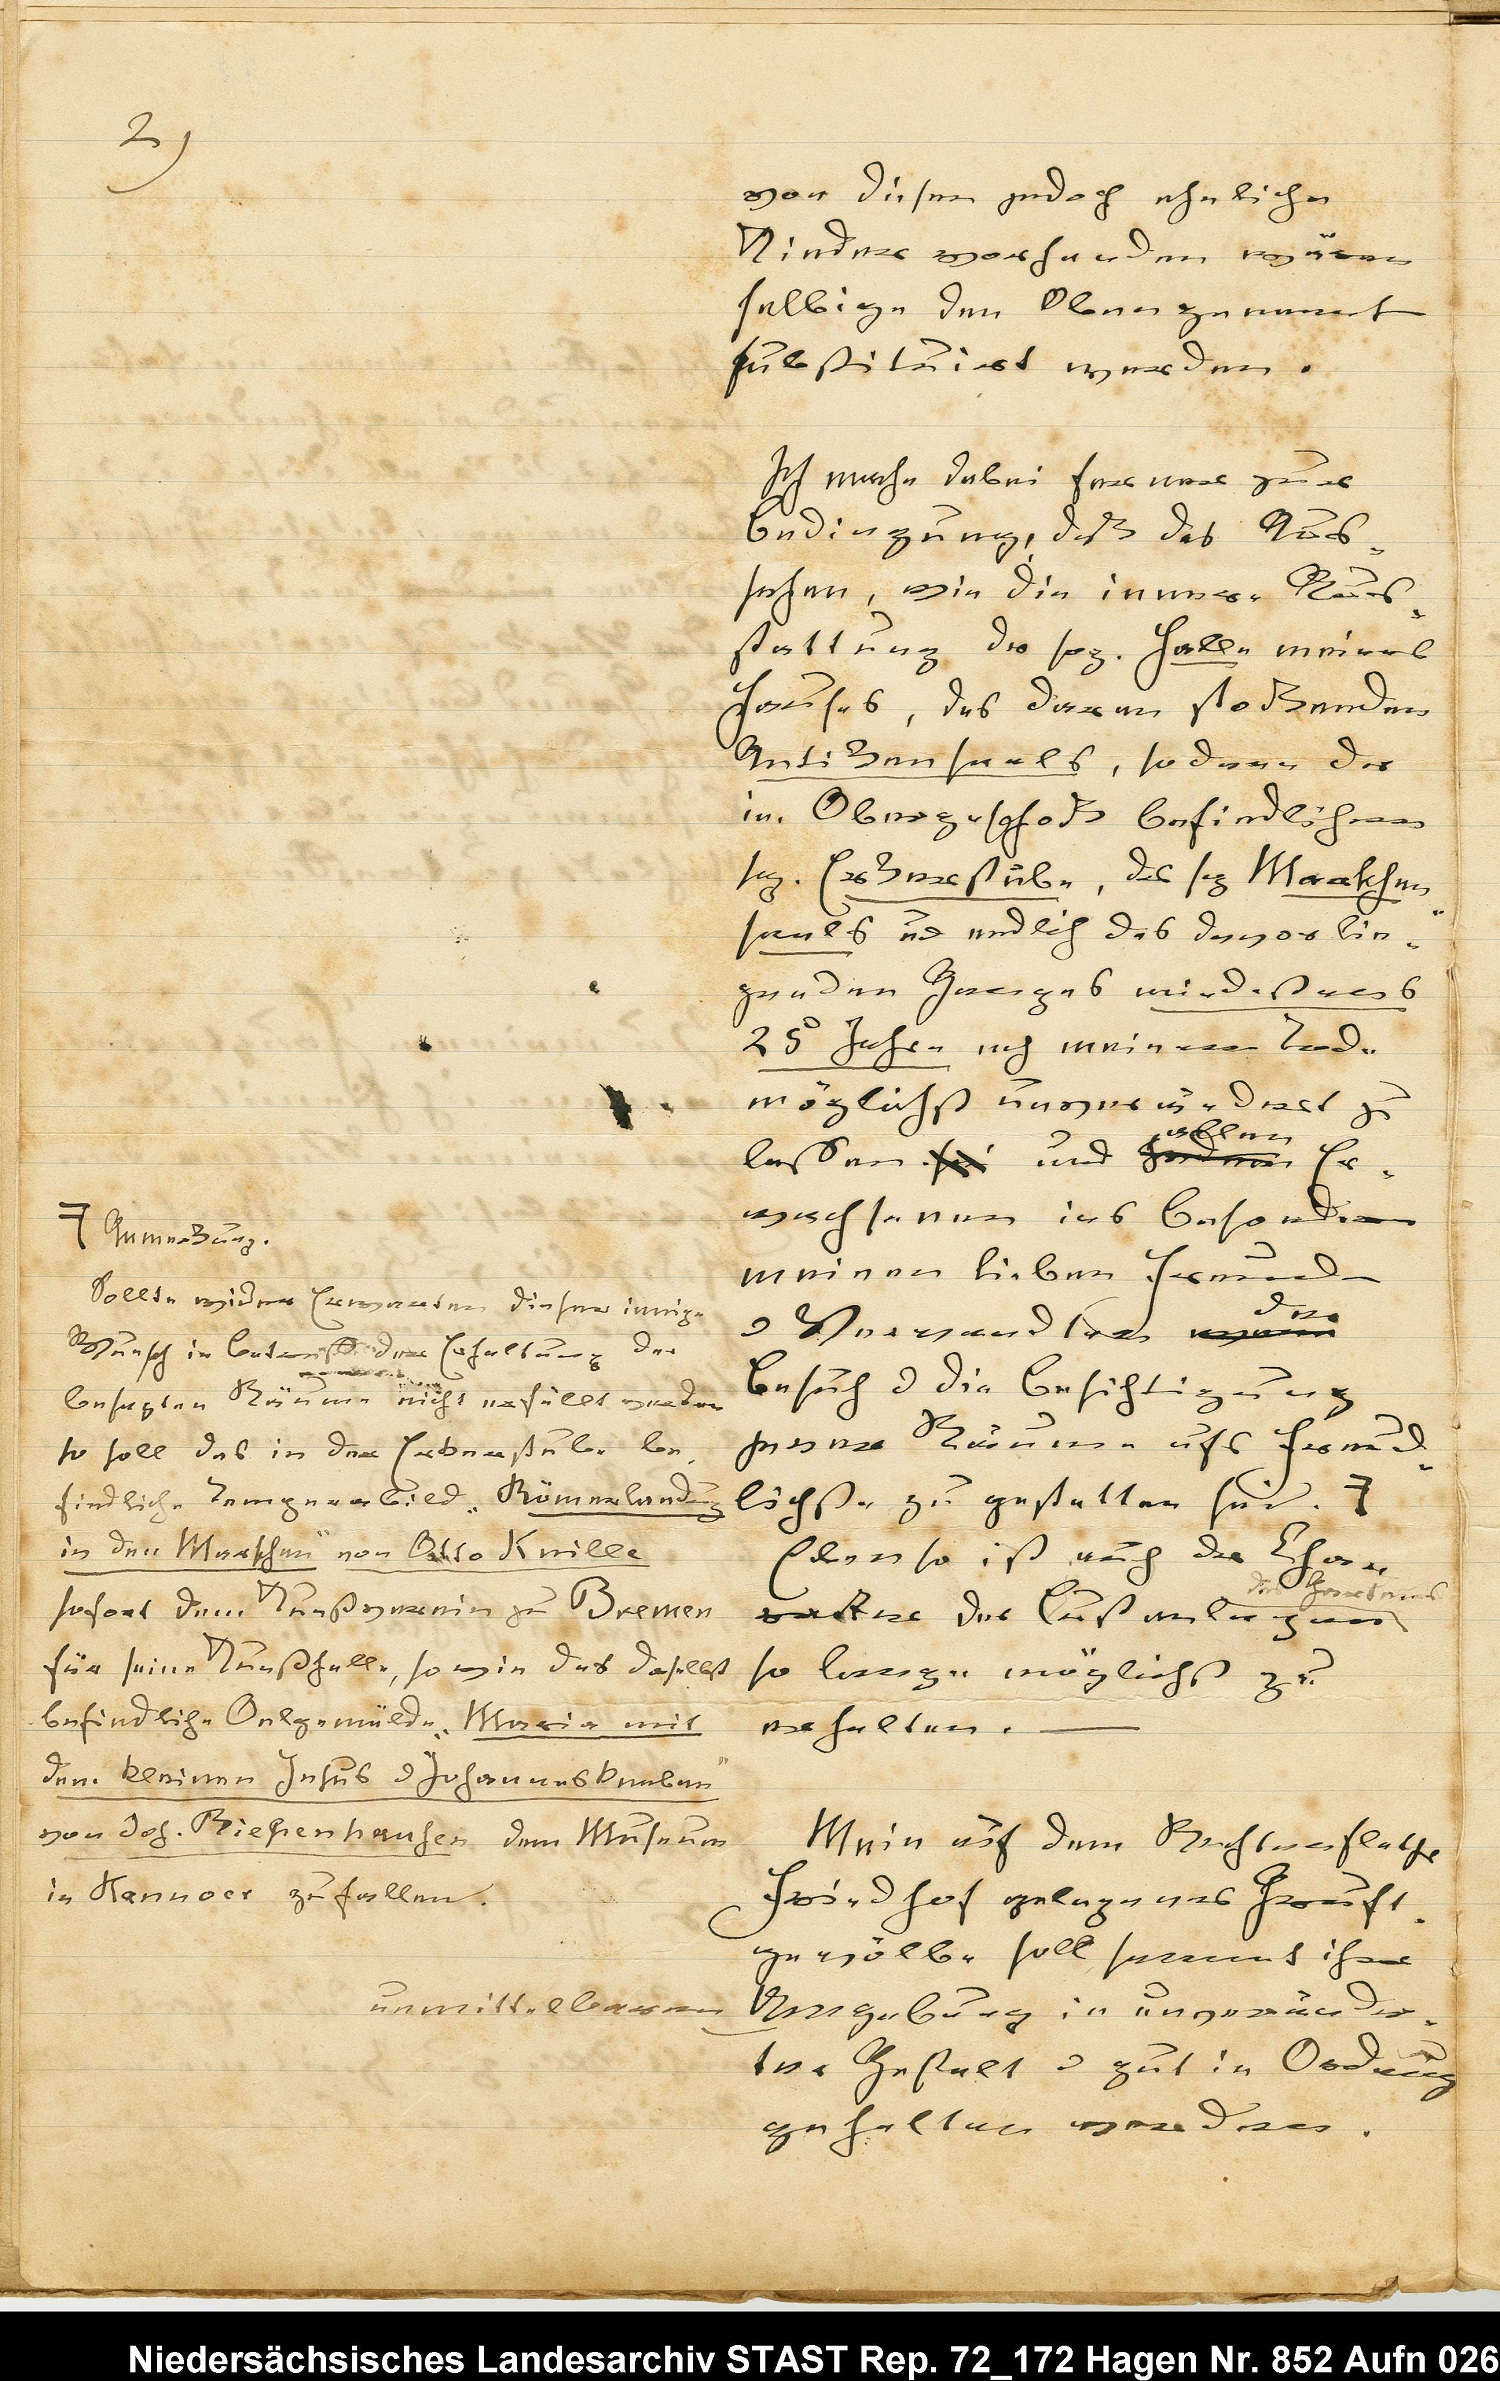 2)
von diesen jedoch eheliche
Kinder vorhanden wären
selbige den Obengenannt
substituiert werden.
Ich mache dabei ferner zur
Bedingung, daß das Aus-
sehen, wie die innere Aus-
stattung der sog. Halle meines
Hauses, des daran stoßenden
Antikensaals, sodann der
im Obergeschoß befindlichen
sog. Erkerstube, des sog Marschen-
saals und endlich des davor lie-
genden Ganges mindestens
25 Jahre nach meinem Tode
möglichst unverändert zu
lassen sei und allen Er-
wachsenen ins besondere
meinen lieben Freunden
& Verwandten der
Besuch & die Besichtigung
jener Räume aufs freund-
lichste zu gestatten sei.
Ebenso ist auch der Char-
rakter der Lustanlagen des Gartens
so lange möglichst zu
erhalten.
Mein auf dem Rechtenflether
Friedhof gelegenes Gruft-
gewölbe soll sammt ihrer
unmittelbaren Umgebung in unveränder-
ter Gestalt & gut in Ordnung
gehalten werden.
Anmerkung.
Sollte wider Erwarten dieser innige
Wunsch in betreff der Erhaltung der
besagten Räume nicht erfüllt werden
so soll das in der Erkerstube be-
findliche Temperabild „Römerlandung
in den Marschen" von Otto Knille
sofort dem Kunstverein zu Bremen
für seine Kunsthalle, sowie das daselbst
befindliche Oelgemälde „Maria mit
dem kleinen Jesus & Johannesknaben"
von Joh. Riepenhausen dem Museum
in Hannover zufallen.
Niedersächsisches Landesarchiv STAST Rep. 72_172 Hagen Nr. 852 Aufn 026